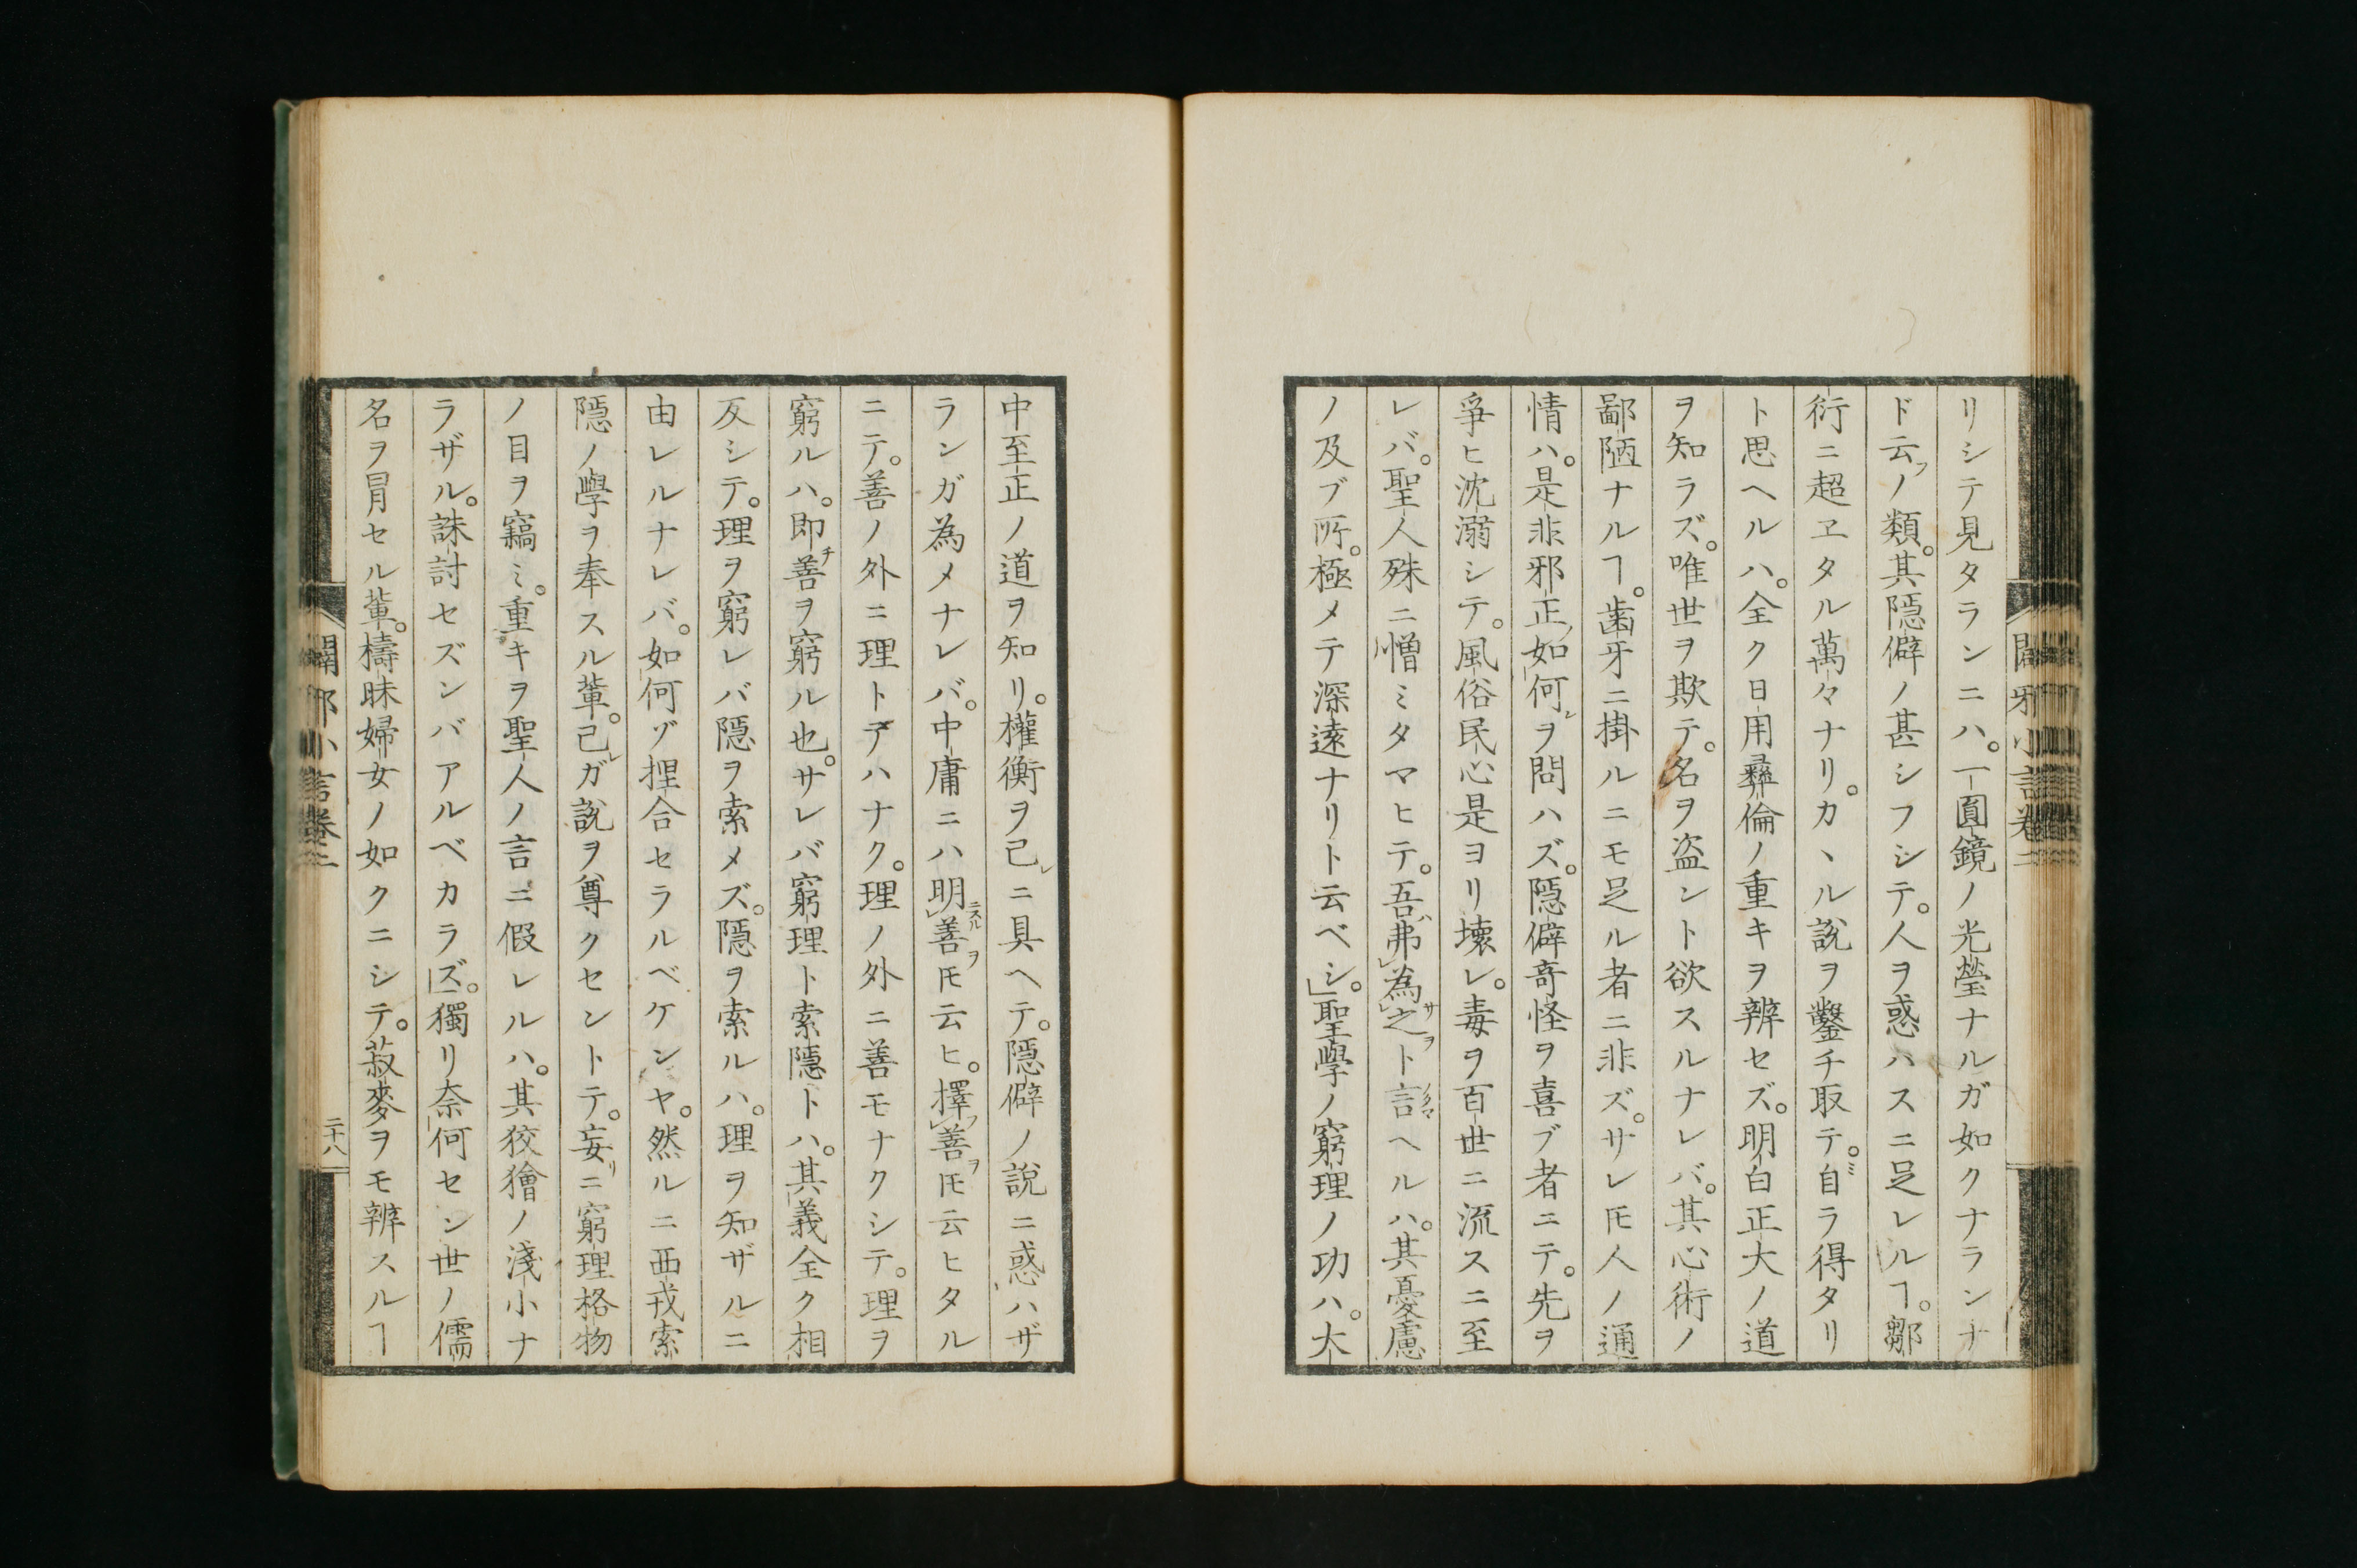 リシテ見タランニハ。一圓鏡ノ光瑩ナルガ如クナランナ
ド云フノ類。其隱僻ノ甚シフシテ。人ヲ惑ハスニ足レルヿ。鄒
衍ニ超ヱタル萬々ナリ。カヽル說ヲ鑿チ取テ。自ミラ得タリ
ト思ヘルハ。全ク日用彝倫ノ重キヲ辨セズ。明白正大ノ道
ヲ知ラズ。唯世ヲ欺テ。名ヲ盗ント欲スルナレバ。其心術ノ
鄙陋ナルヿ。齒牙ニ掛ルニモ足ル者ニ非ズ。サレ𪜈人ノ通
情ハ。是非邪正ノ如何レヲ問ハズ。隱僻奇怪ヲ喜ブ者ニテ。先ヲ
爭ヒ沈溺シテ。風俗民心是ヨリ壞レ。毒ヲ百世ニ流スニ至
レバ。聖人殊ニ憎ミタマヒテ。吾ハ弗為サ之ヲト言ヘルハ。其憂慮
ノ及ブ所。極メテ深遠ナリト云ベシ。聖學ノ窮理ノ功ハ。大
闢邪小言卷二
中至正ノ道ヲ知リ。權衡ヲ己レニ具ヘテ。隱僻ノ說ニ惑ハザ
ランガ為メナレバ。中庸ニハ明ニスル善ヲ𪜈云ヒ。擇フ善ヲ𪜈云ヒタル
ニテ。善ノ外ニ理トテハナク。理ノ外ニ善モナクシテ。理ヲ
窮ルハ。即チ善ヲ窮ル也。サレバ窮理ト索隱トハ。其義全ク相
反シテ。理ヲ窮レバ隱ヲ索メズ。隱ヲ索ルハ。理ヲ知ザルニ
由レルナレバ。如何ゾ捏合セラルベケンヤ。然ルニ西戎索
隱ノ學ヲ奉スル輩。己レガ說ヲ尊クセントテ。妄リニ窮理格物
ノ目ヲ竊ミ。重キヲ聖人ノ言ニ假レルハ。其狡獪ノ淺小ナ
ラザル。誅討セズンバアルベカラズ。獨リ奈何セン世ノ儒
名ヲ冒セル輩。檮昧婦女ノ如クニシテ。菽麥ヲモ辨スルヿ
闢邪小言卷二
二十八